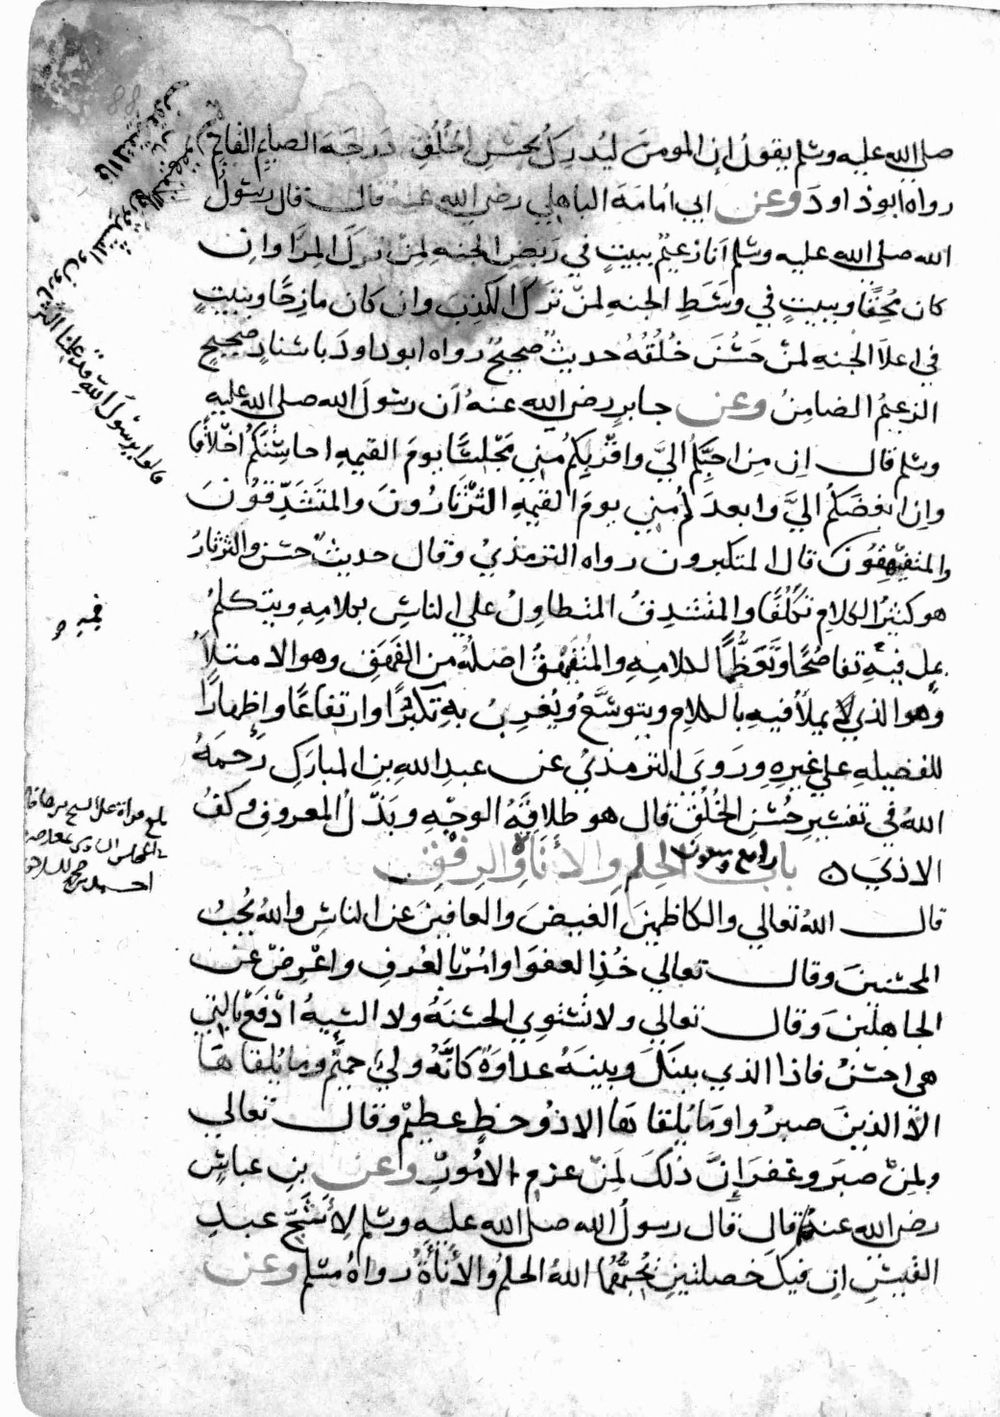 صلى الله عليه وسلم يقول إن المومن ليدرك بحسن الخلق درجة الصايم القايم
رواه ابو داود وعن ابي امامة الباهلي رضي الله عنه قال قال رسول
الله صلى الله عليه وسلم أنا زعيم ببيت في ربض الجنه لمن ترك المرا وان
كان محقا وببيت في وسط الجنه لمن ترك الكذب وان كان مازحا وببيت
في اعلا الجنه لمن حسن خلقه حديث صحيح رواه ابو داود باسناد صحيح
الزعيم الضامن وعن جابر رضي الله عنه أن رسول الله صلى الله عليه
وسلم قال ان من احبكم اليَّ واقربكم مني مجلسا يوم القيمه احاسنكم اخلاقا
وان ابغضكم اليَّ وابعدكم مني يوم القيمه الثرثارون والمتشدقون
والمتفيهقون قال المتكبرون رواه الترمذي وقال حديث حسن والثرثار
هو كثير الكلام تكلفا والمتشدق المتطاول على الناس بكلامه ويتكلم
بمل فيه تفاصحا وتعظما لكلامه والمتفيهق اصله من الفهق وهو الامتلا
وهو الذي يملا فيه بالكلام ويتوسع ويغرب به تكبرا وارتفاعا واظهارا
للفضيله على غيره وروى الترمذي عن عبد الله بن المبارك رحمه
الله في تفسير حسن الخلق قال هو طلاقة الوجه وبذل المعروف وكف
الاذى ه باب رابع وسبعون الحلم والأناة والرفق
قال الله تعالى والكاظمين الغيض والعافين عن الناس والله يحب
المحسنين وقال تعالى خذ العفو وامر بالعرف واعرض عن
الجاهلين وقال تعالى ولا تستوي الحسنه ولا السيه ادفع بالتي
هى احسن فاذا الذي بينك وبينه عداوة كانه ولي حميم وما يلقاها
الا الذين صبروا وما يلقاها الا ذو حظ عظيم وقال تعالى
ولمن صبر وغفر إن ذلك لمن عزم الامور وعن بن عباس
رضي الله عنهما قال قال رسول الله صلى الله عليه وسلم لأشج عبد
القيس ان فيك خصلتين يحبهما الله الحلم والأناة رواه مسلم وعن
قالوا يرسول الله قد علمنا الثرثارون والمتشدقون فما المتفيهقون